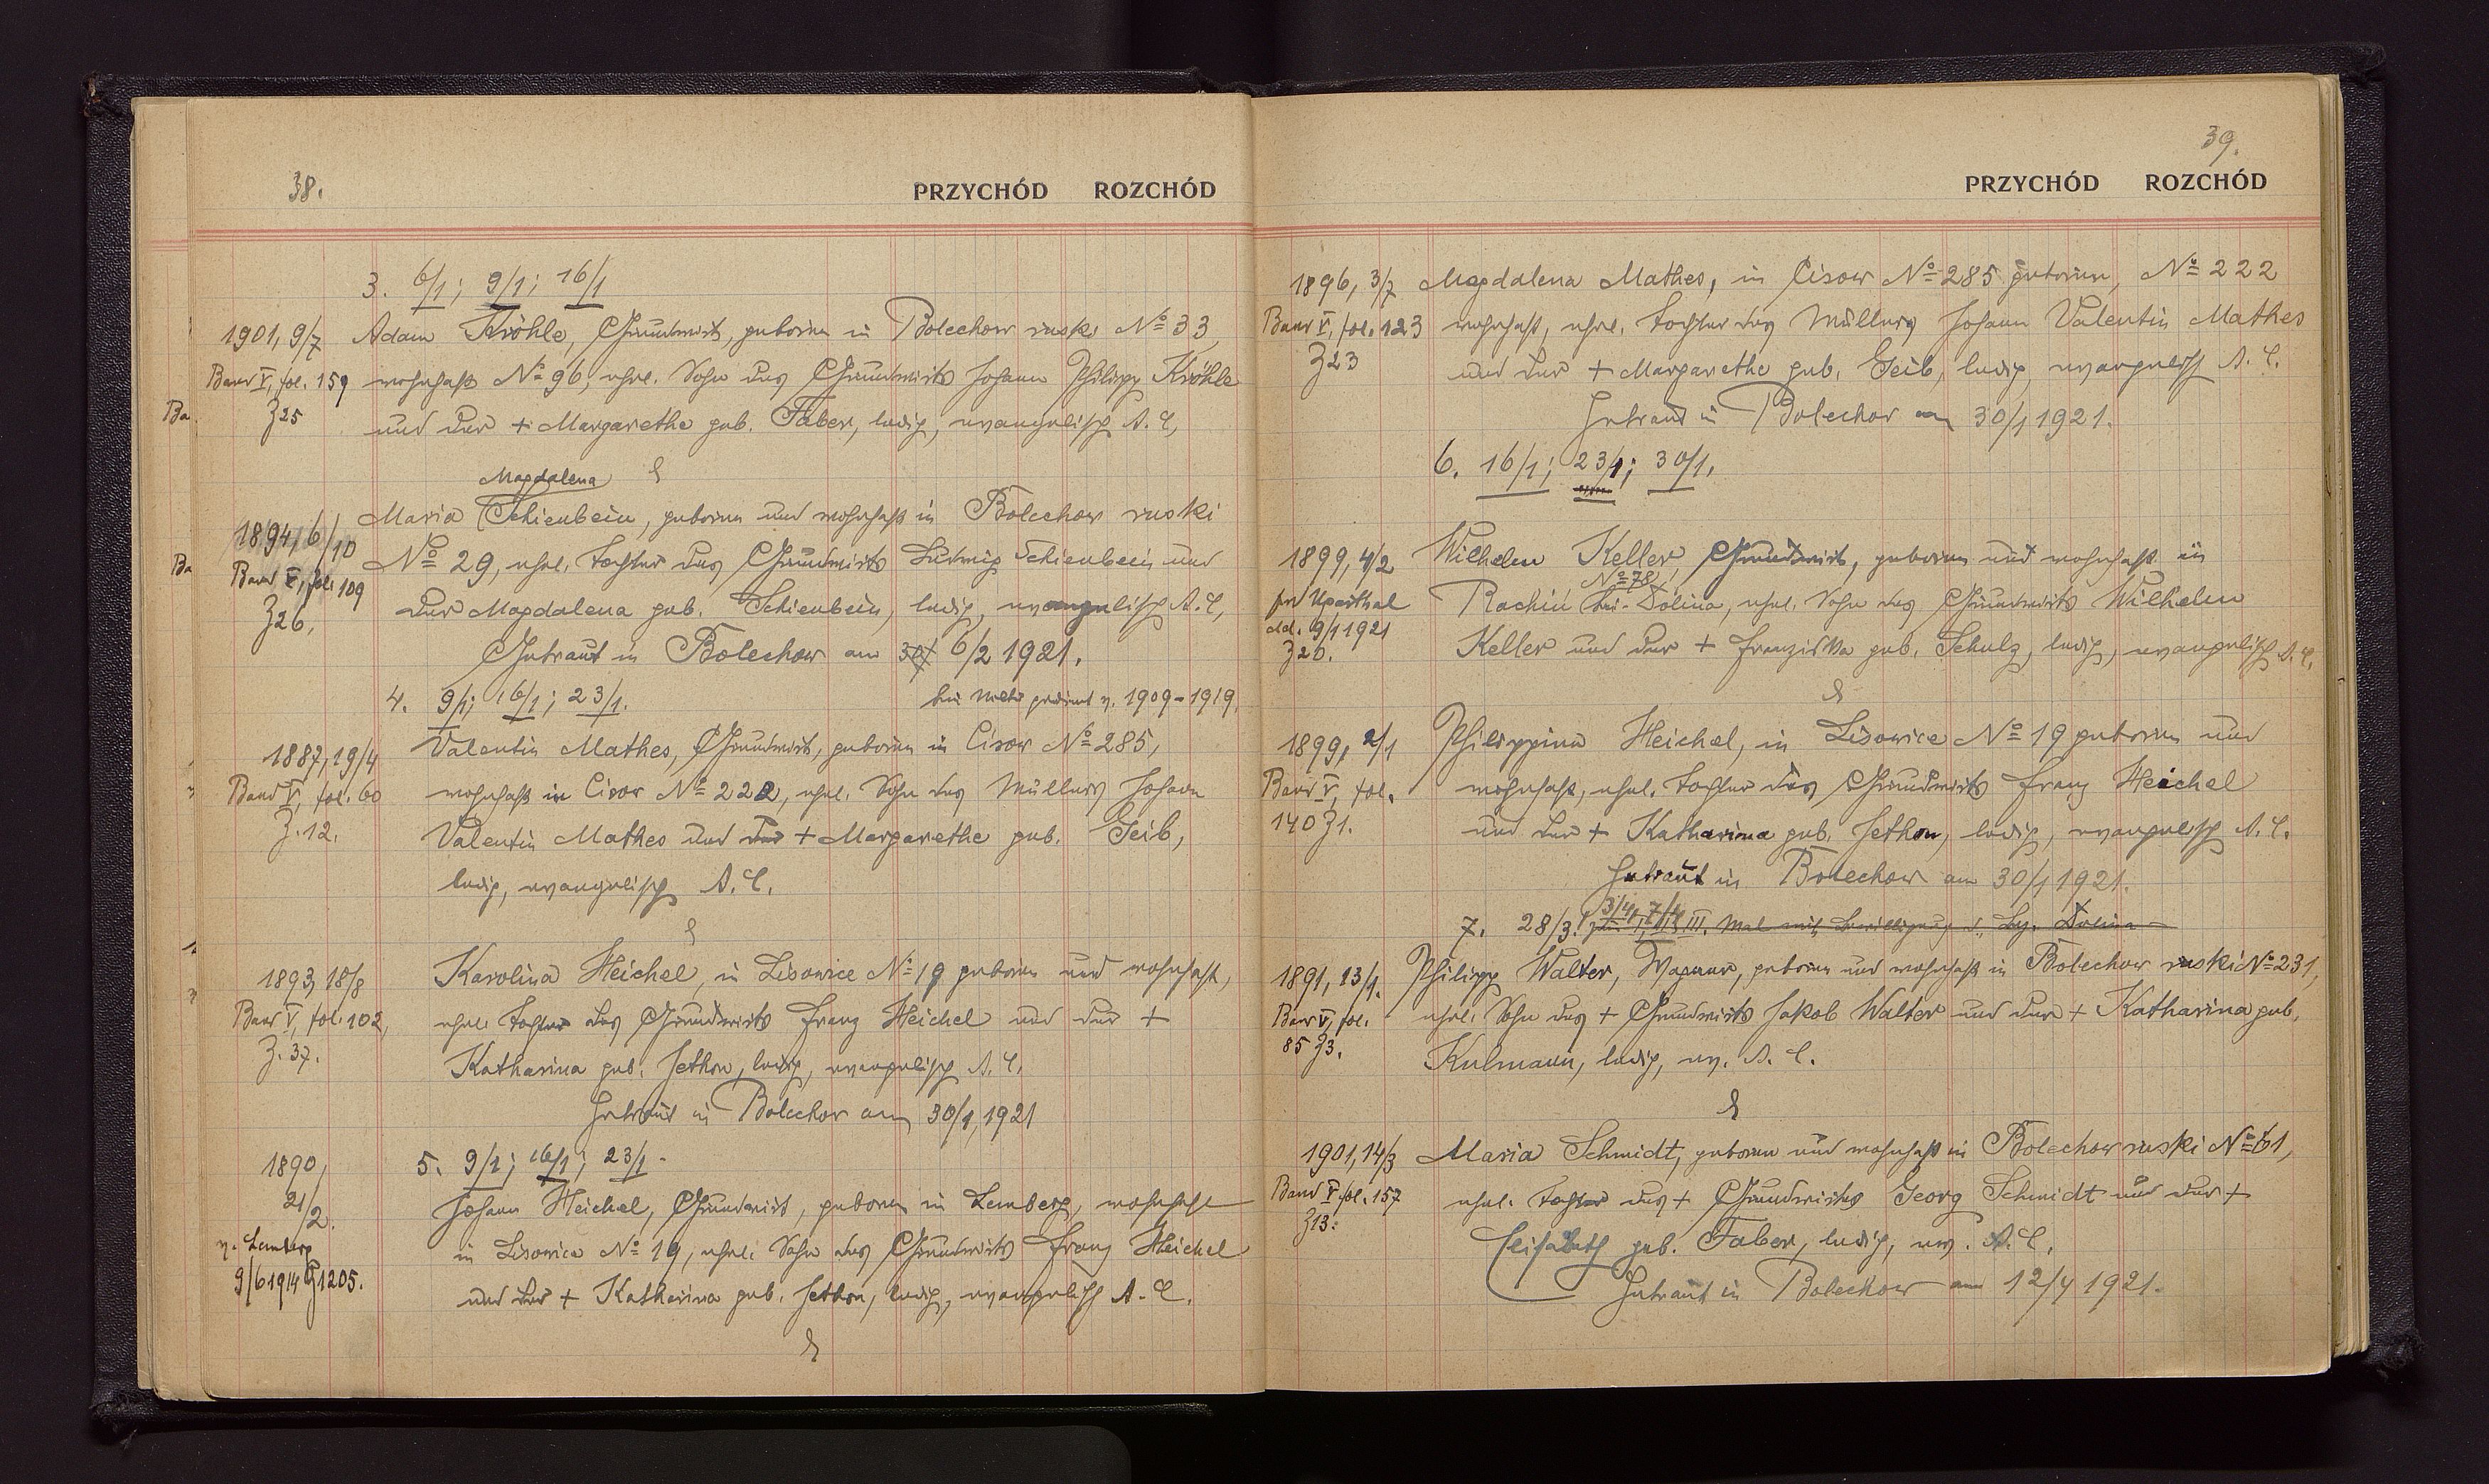 38.
PRZYCHÓD ROZCHÓD
3. 6/1; 9/1; 16/1
1901, 9/7 Adam Kröhle, Grundwirt, geboren in Bolechow ruski № 33
Band V, fol. 159 wohnhaft № 96, ehel. Sohn des Grundwirts Johann Philipp Kröhle
Z 25 und der + Margarethe geb. Faber, ledig, evangelisch A. C,
&
Magdalena
Maria Schienbein, geboren und wohnhaft in Bolechow ruski
1894, 6/10 № 29, ehel. Tochter des Grundwirts Ludwig Schienbein und
Band V, fol. 109
Z 26, der Magdalena geb. Schienbein, ledig, evangelisch A. C,
Getraut in Bolechow am 30/ 6/2 1921.
4. 9/1; 16/1; 23/1. beim Militär gedient v. 1909-1919.
1887, 19/4 Valentin Mathes, Grundwirt, geboren in Cisow № 285,
Band V, fol. 60 wohnhaft in Cisow № 222, ehel. Sohn des Müllers Johann
Z. 12. Valentin Mathes und der + Margarethe geb. Geib,
ledig, evangelisch A. C.
&
1893, 18/8 Karolina Heichel, in Lisowice № 19 geboren und wohnhaft,
Band V, fol. 102, ehel. Tochter des Grundwirts Franz Heichel und der +
Z. 37. Katharina geb. Jethon, ledig, evangelisch A. C.
Getraut in Bolechow am 30/1 1921
1890, 5. 9/1; 16/1; 23/1.
21/2. Johann Heichel, Grundwirt, geboren in Lemberg, wohnhaft
v. Lemberg in Lisowice № 19, ehel. Sohn des Grundwirts Franz Heichel
9/6 1914 Z 1205. und der + Katharina geb. Jethon, ledig, evangelisch A. C.
&
39.
PRZYCHÓD ROZCHÓD
1896, 3/7 Magdalena Mathes, in Cisow № 285 geboren, № 222
Band V, fol. 123 wohnhaft, ehel. Tochter des Müllers Johann Valentin Mathes
Z 23 und der + Margarethe geb. Geib, ledig, evangelisch A. C.
Getraut in Bolechow am 30/1 1921.
6. 16/1; 23/1; 30/1.
1899, 4/2 Wilhelm Keller, Grundwirt, geboren und wohnhaft in
№ 78
Rachiń bei Dolina, ehel. Sohn des Grundwirts Wilhelm
dd. 9/1 1921
Z 20. Keller und der + Franziska geb. Schulz, ledig, evangelisch A. C.
&
1899, 2/1 Philippina Heichel, in Lisowice № 19 geboren und
Band V, fol. wohnhaft, ehel. Tochter des Grundwirts Franz Heichel
140 Z 1. und der + Katharina geb. Jethon, ledig, evangelisch A. C.
Getraut in Bolechow am 30/1 1921.
3/4, 7/4
7. 28/3. zum I, II, III. Mal mit Bewilligung d. Dolina
1891, 13/1. Philipp Walter, Wagner, geboren und wohnhaft in Bolechow ruski № 231,
Band V, fol. ehel. Sohn des + Grundwirts Jakob Walter und der + Katharina geb.
85 Z 3. Kulmann, ledig, ev. A. C.
&
1901, 14/3 Maria Schmidt, geboren und wohnhaft in Bolechow ruski № 61,
Band V fol. 157 ehel. Tochter des + Grundwirts Georg Schmidt und der +
Z 13. Elisabeth geb. Faber, ledig, ev. A. C.
Getraut in Bolechow am 12/4 1921.